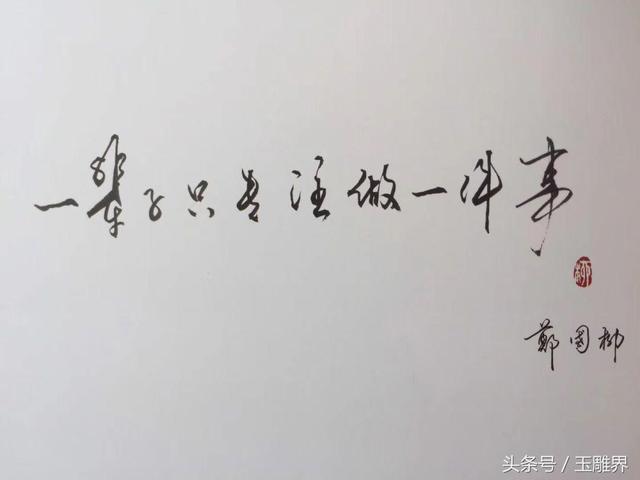 一辈子只专注做一件事
柳
鄭国柳
头条号/玉雕界